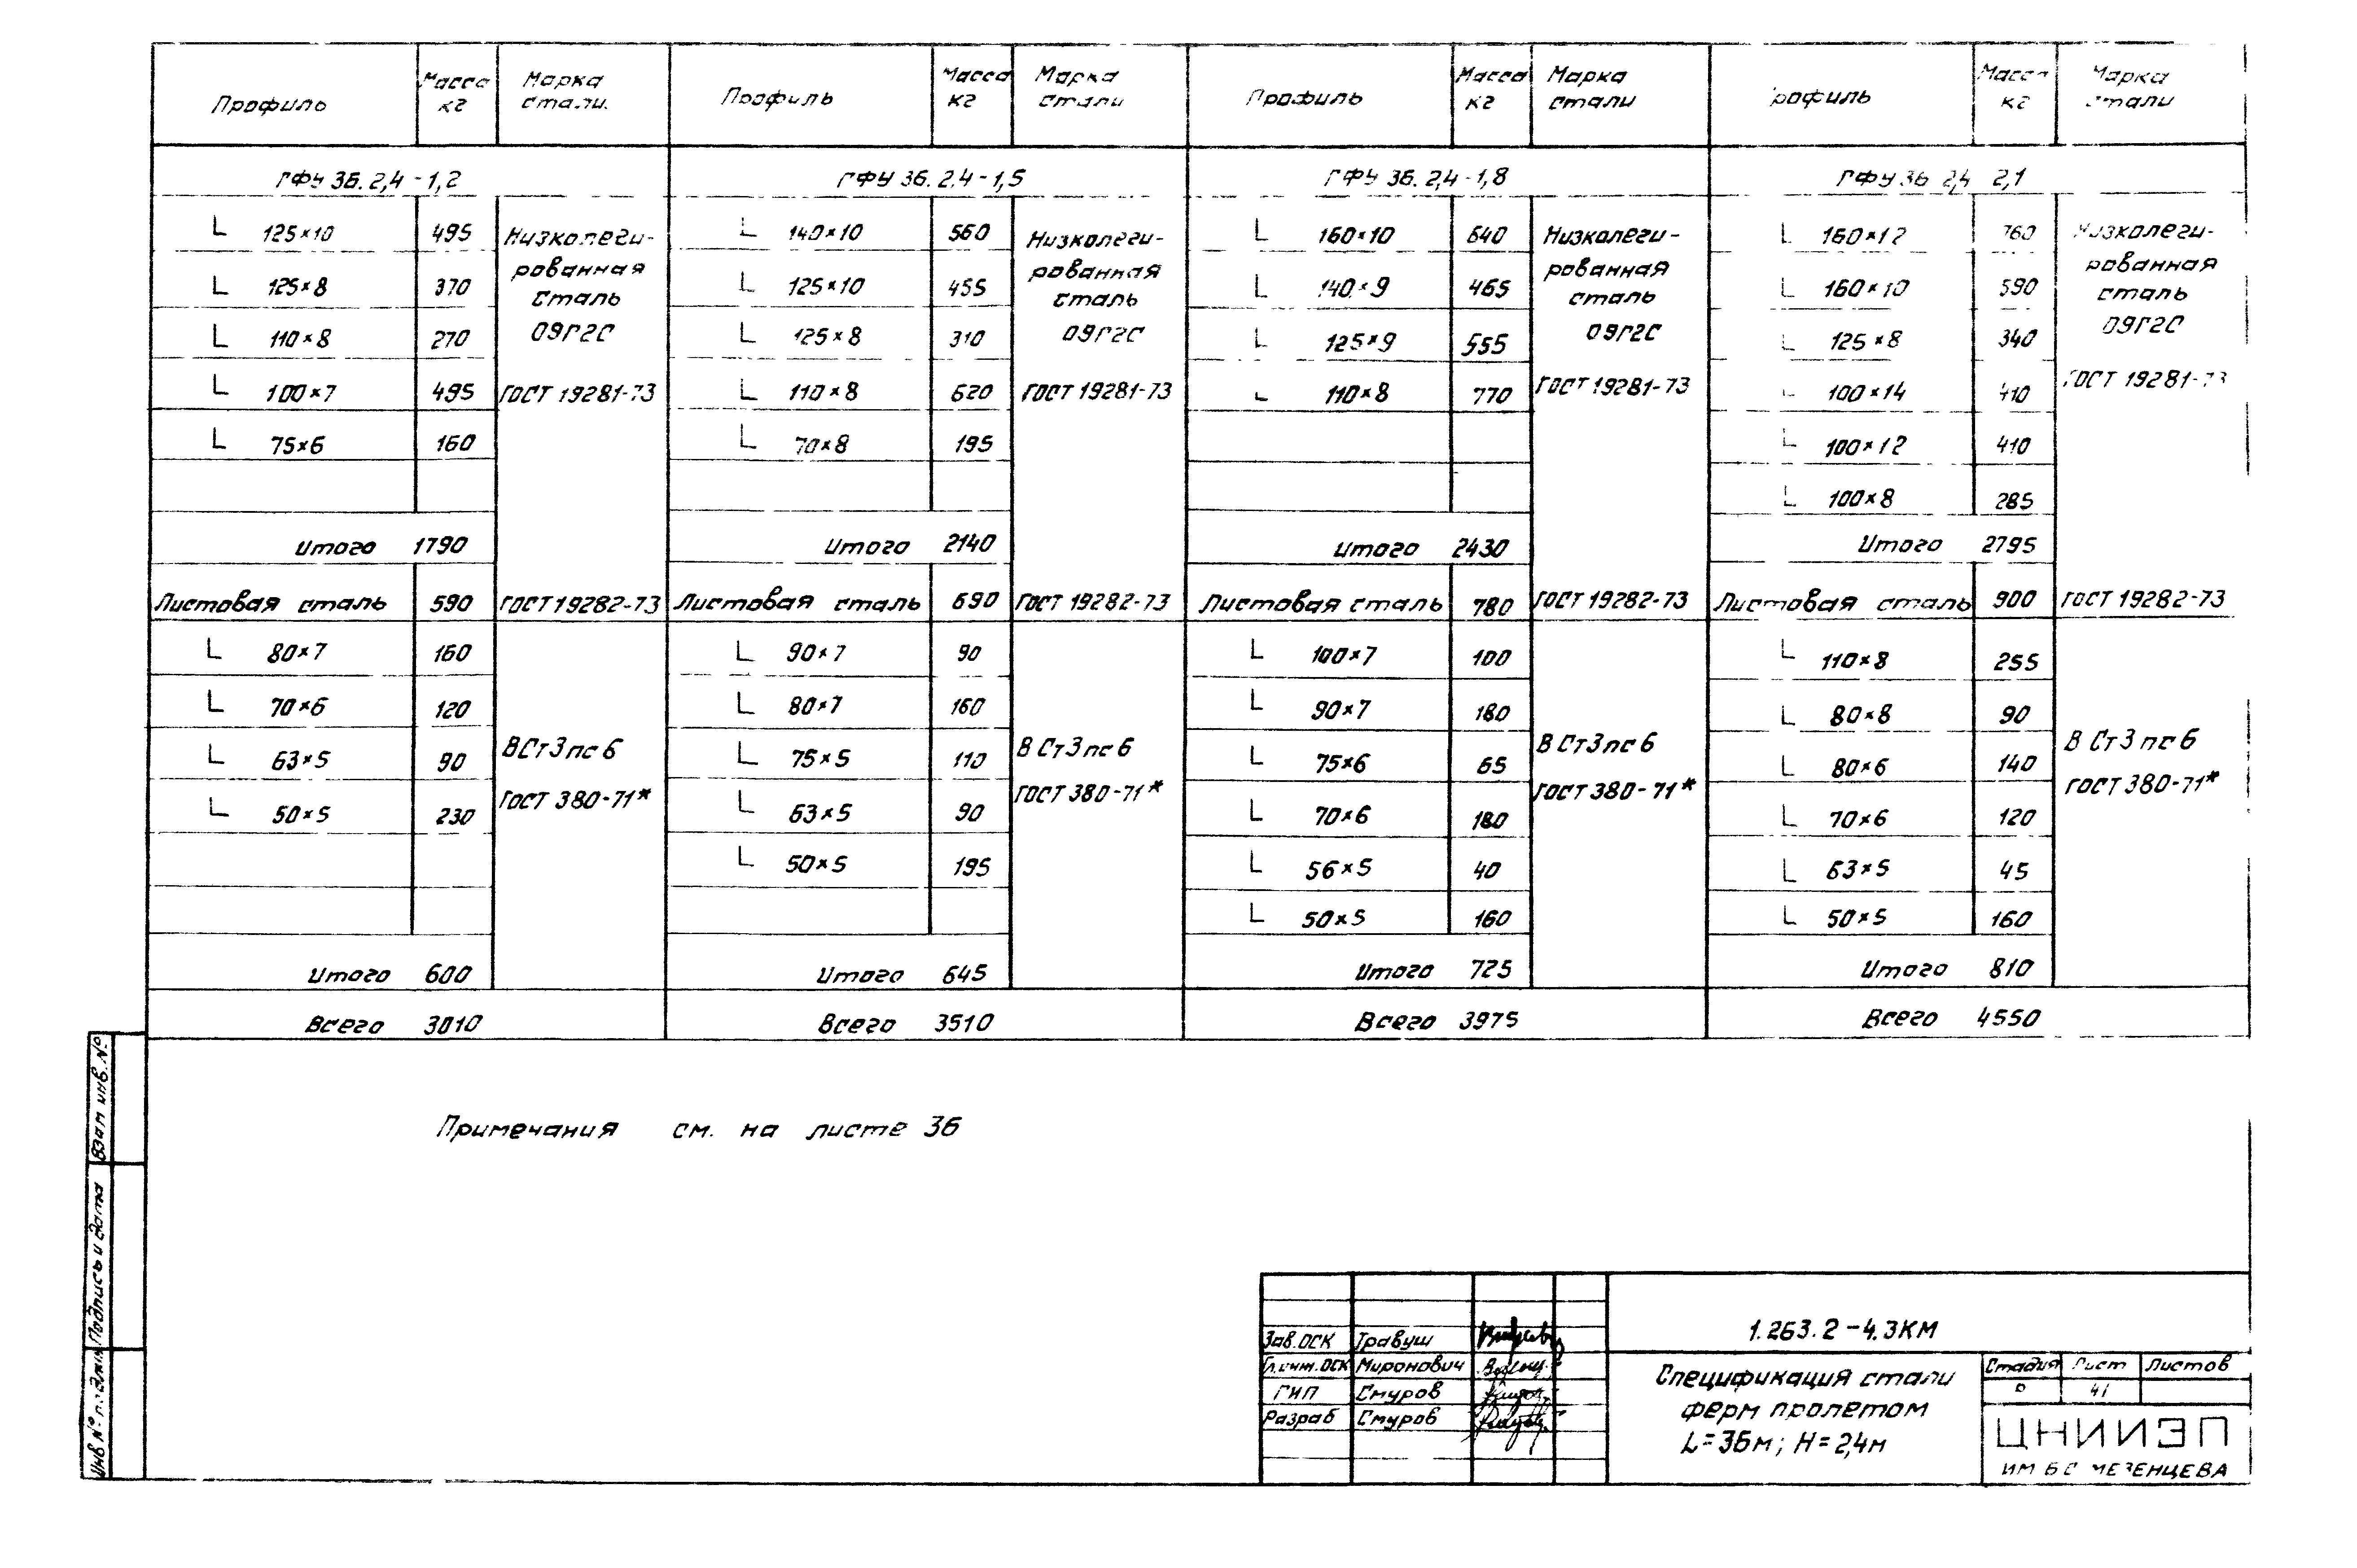 Профиль Масса кг Марка стали. Профиль Масса кг Марка стали Профиль Масса кг Марка стали рофиль Масса кг Марка стали
ГФУ 36. 2,4 - 1,2 ГФУ 36. 2,4 - 1,5 ГФУ 36. 2,4 - 1,8 ГФУ 36 2,4 2,1
L 125×10 495 Низколеги- L 140×10 560 Низколеги- L 160×10 640 Низколеги- L 160×12 760 Низколеги-
рованная рованная рованная рованная
L 125×8 370 сталь L 125×10 455 сталь L 140×9 465 сталь L 160×10 590 сталь
L 110×8 270 09Г2С L 125×8 310 09Г2С L 125×9 555 09Г2С L 125×8 340 09Г2С
L 100×7 495 ГОСТ 19281-73 L 110×8 620 ГОСТ 19281-73 L 110×8 770 ГОСТ 19281-73 L 100×14 410 ГОСТ 19281-73
L 75×6 160 L 70×8 195 L 100×12 410
L 100×8 285
Итого 1790 Итого 2140 Итого 2430 Итого 2795
Листовая сталь 590 ГОСТ 19282-73 Листовая сталь 690 ГОСТ 19282-73 Листовая сталь 780 ГОСТ 19282-73 Листовая сталь 900 ГОСТ 19282-73
L 80×7 160 L 90×7 90 L 100×7 100 L 110×8 255
L 70×6 120 L 80×7 160 L 90×7 180 L 80×8 90
L 63×5 90 ВСт3пс6 L 75×5 110 В Ст3пс6 L 75×6 65 В Ст3пс6 L 80×6 140 В Ст3пс6
L 50×5 230 ГОСТ 380-71* L 63×5 90 ГОСТ 380-71* L 70×6 180 ГОСТ 380-71* L 70×6 120 ГОСТ 380-71*
L 50×5 195 L 56×5 40 L 63×5 45
L 50×5 160 L 50×5 160
Итого 600 Итого 645 Итого 725 Итого 810
Всего 3010 Всего 3510 Всего 3975 Всего 4550
Примечания см. на листе 36
Взам инв. №
Подпись и дата
Инв № подлин.
Зав. ОСК Травуш
Гл. инж. ОСК Миронович
ГИП Смуров
Разраб Смуров
1.263.2-4.3КМ
Спецификация стали
ферм пролетом
L=36м; H=2,4м
Стадия Лист Листов
Р 41
ЦНИИЭП
ИМ Б С МЕЗЕНЦЕВА